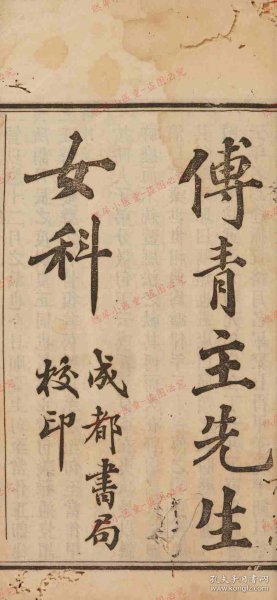 傅青主先生
女科
成都書局
校印